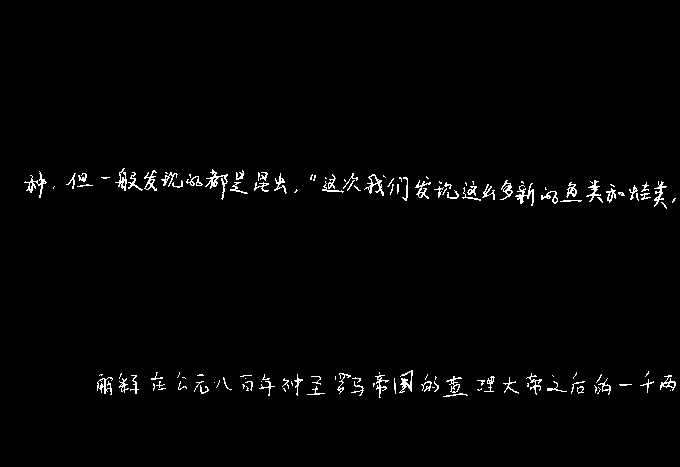 种.但一般发现的都是昆虫,“这次我们发现这么多新的鱼类和蛙类,
解释在公元八百年神圣罗马帝国的查理大帝之后的一千两